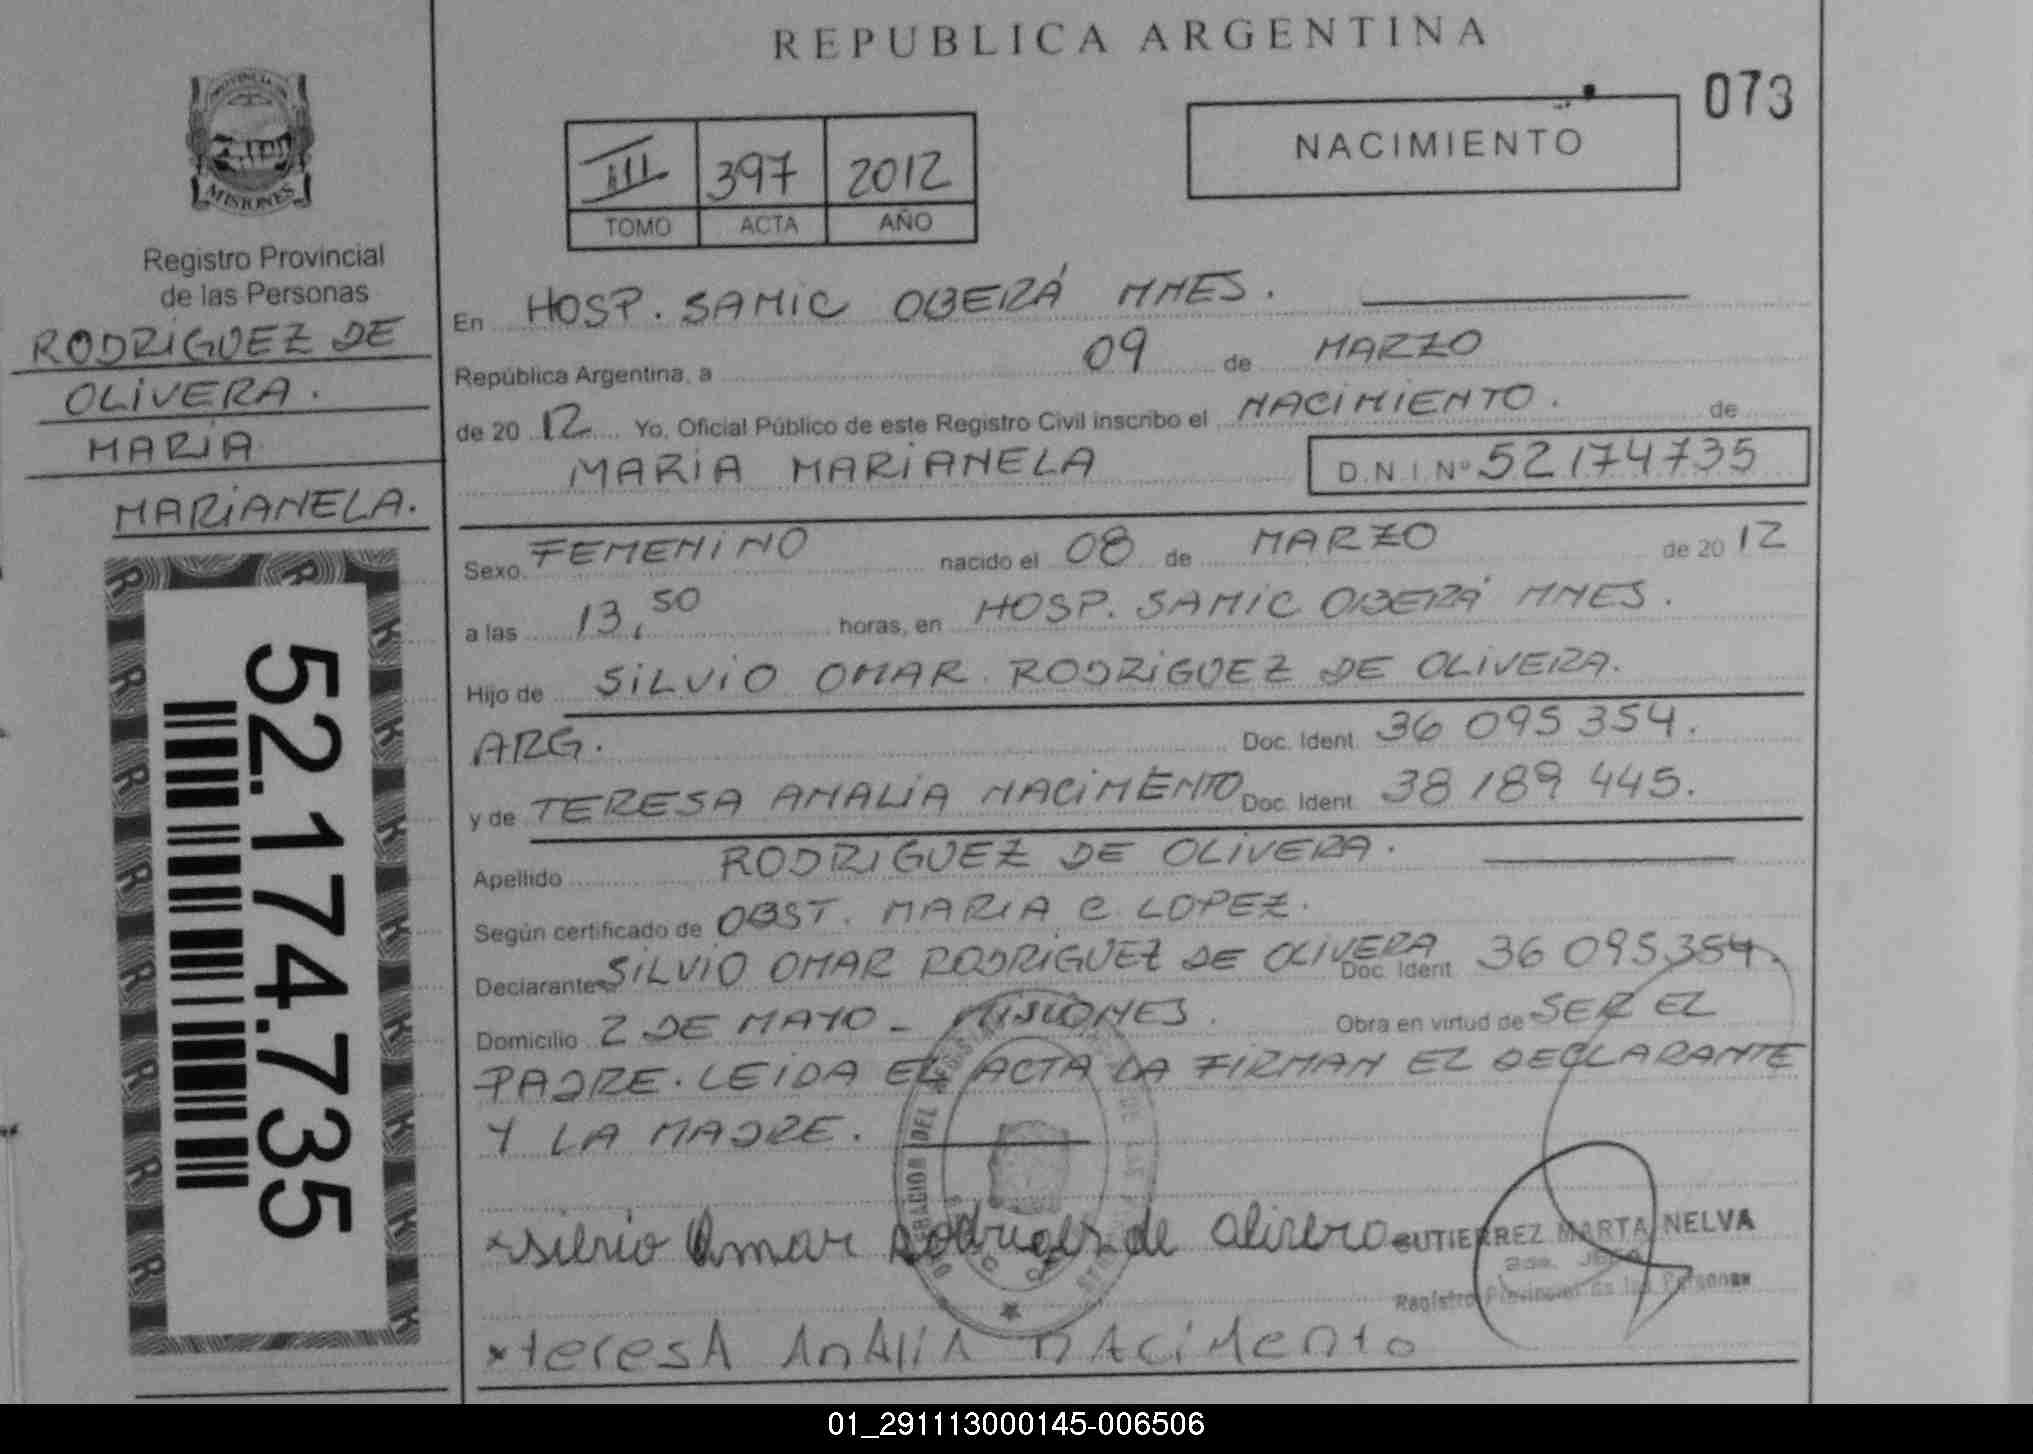 REPUBLICA ARGENTINA
073
PROVINCIA DE
MISIONES
Registro Provincial
de las Personas
RODRIGUEZ DE
OLIVERA.
MARIA
MARIANELA.
52.174.735
III 397 2012
TOMO ACTA AÑO
NACIMIENTO
En HOSP. SAMIC OBERÁ MNES.
República Argentina, a 09 de MARZO
de 20 12 Yo, Oficial Público de este Registro Civil inscribo el NACIMIENTO. de
MARIA MARIANELA D.N.I. Nº 52174735
Sexo FEMENINO nacido el 08 de MARZO de 20 12
a las 13,50 horas, en HOSP. SAMIC OBERÁ MNES.
Hijo de SILVIO OMAR RODRIGUEZ DE OLIVERA.
ARG. Doc. Ident. 36 095 354.
y de TERESA ANALIA NACIMENTO Doc. Ident. 38 189 445.
Apellido RODRIGUEZ DE OLIVERA.
Según certificado de OBST. MARIA C LOPEZ.
Declarante SILVIO OMAR RODRIGUEZ DE OLIVERA Doc. Ident. 36 095 354.
Domicilio 2 DE MAYO - MISIONES. Obra en virtud de SER EL
PADRE. LEIDA EL ACTA LA FIRMAN EL DECLARANTE
Y LA MADRE.
x silvio Omar Rodriguez de olivera
GUTIERREZ MARTA NELVA
Registro Provincial de las Personas
x teresA AnAliA nAciMento
01_291113000145-006506